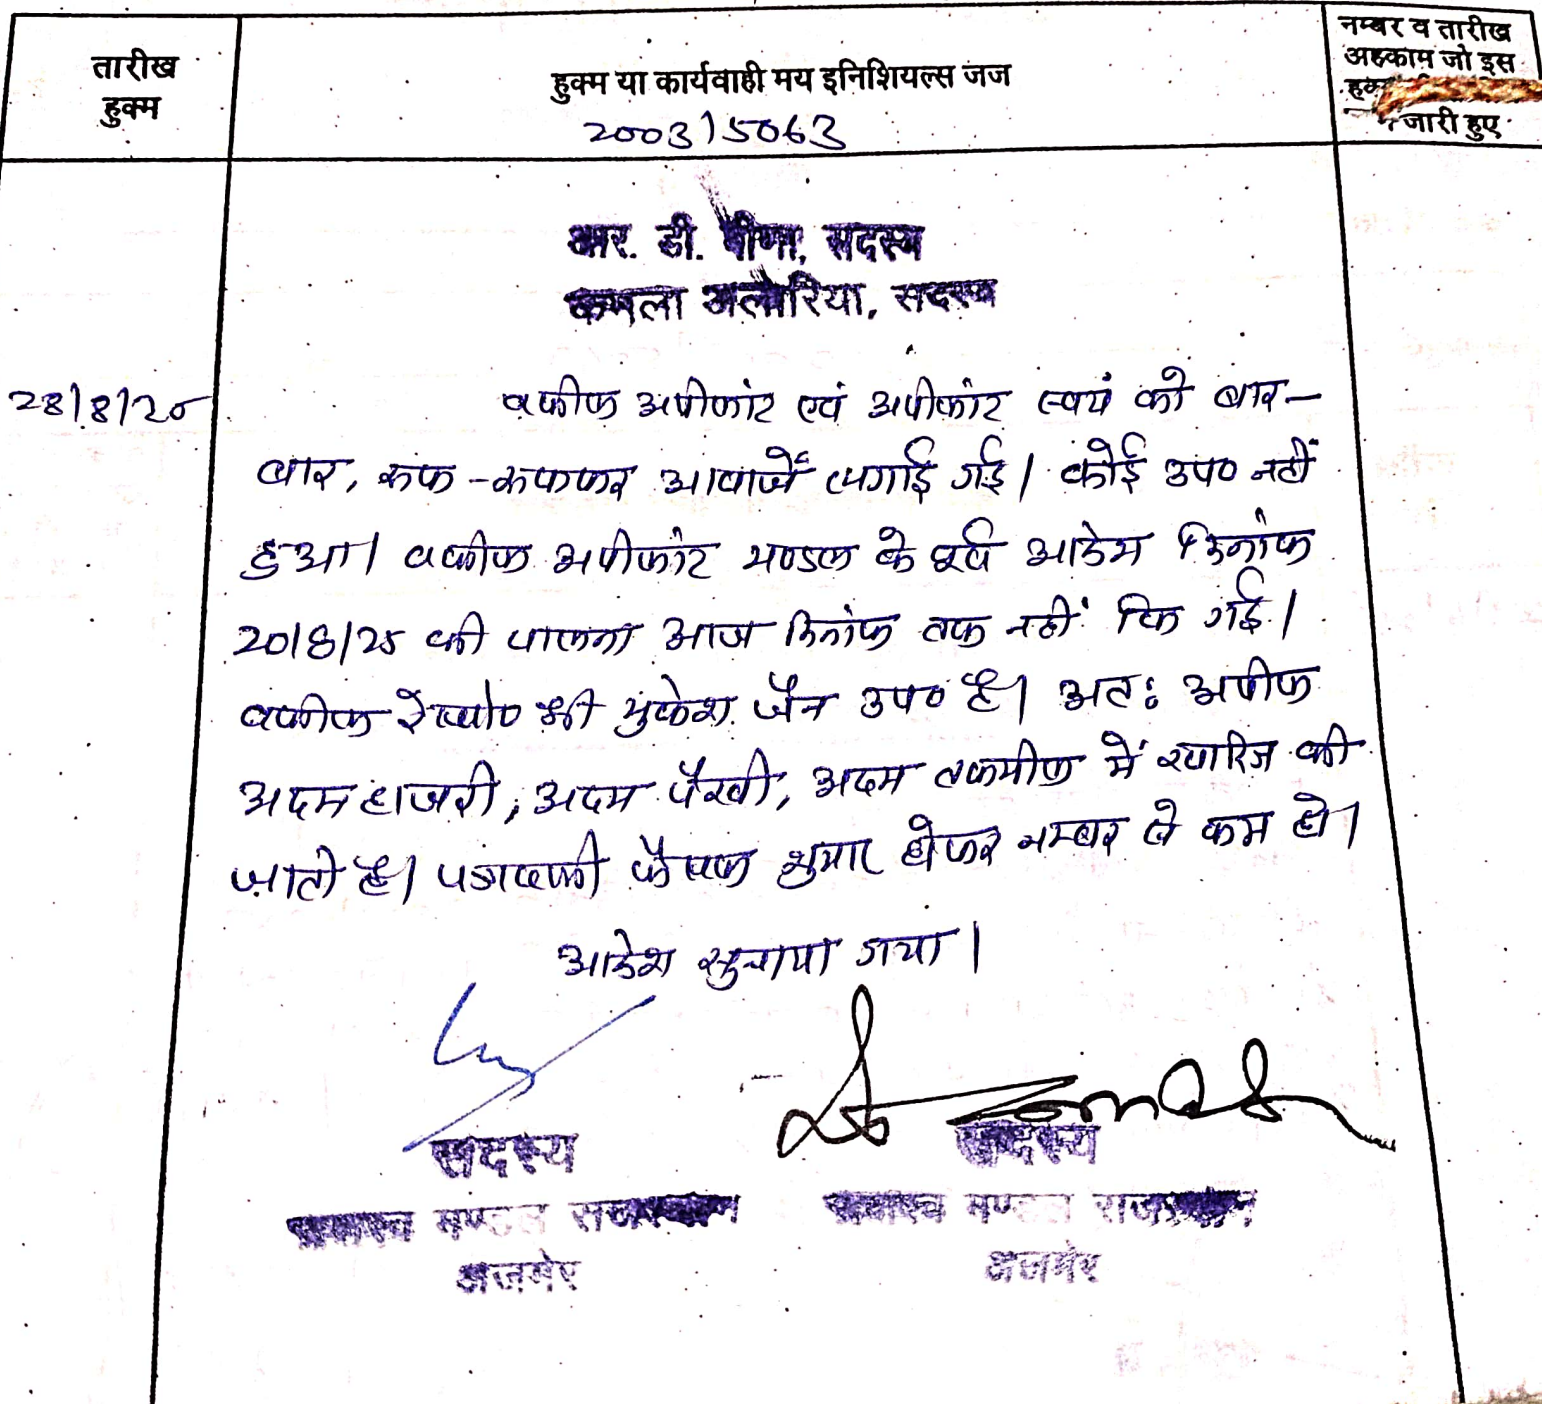 तारीख
हुक्म
हुक्म या कार्यवाही मय इनिशियल्स जज
2003/5063
नम्बर व तारीख
अहकाम जो इस
जारी हुए
आर. डी. मीणा, सदस्य
कमला अलारिया, सदस्य
28/8/25
वकील अपीलांट एवं अपीलांट स्वयं को बार-
बार, रूक-रूककर आवाजें लगाई गई। कोई उप० नहीं
हुआ। वकील अपीलांट मण्डल के पूर्व आदेश दिनांक
20/8/25 की पालना आज दिनांक तक नहीं कि गई।
वकील रेस्पो० श्री मुकेश जैन उप० है। अतः अपील
अदम हाजरी, अदम पैरवी, अदम तकमील में खारिज की
जाती है। पत्रावली फैसल शुमार होकर नम्बर से कम हो।
आदेश सुनाया गया।
सदस्य
सदस्य
राजस्व मण्डल राजस्थान
राजस्व मण्डल राजस्थान
अजमेर
अजमेर